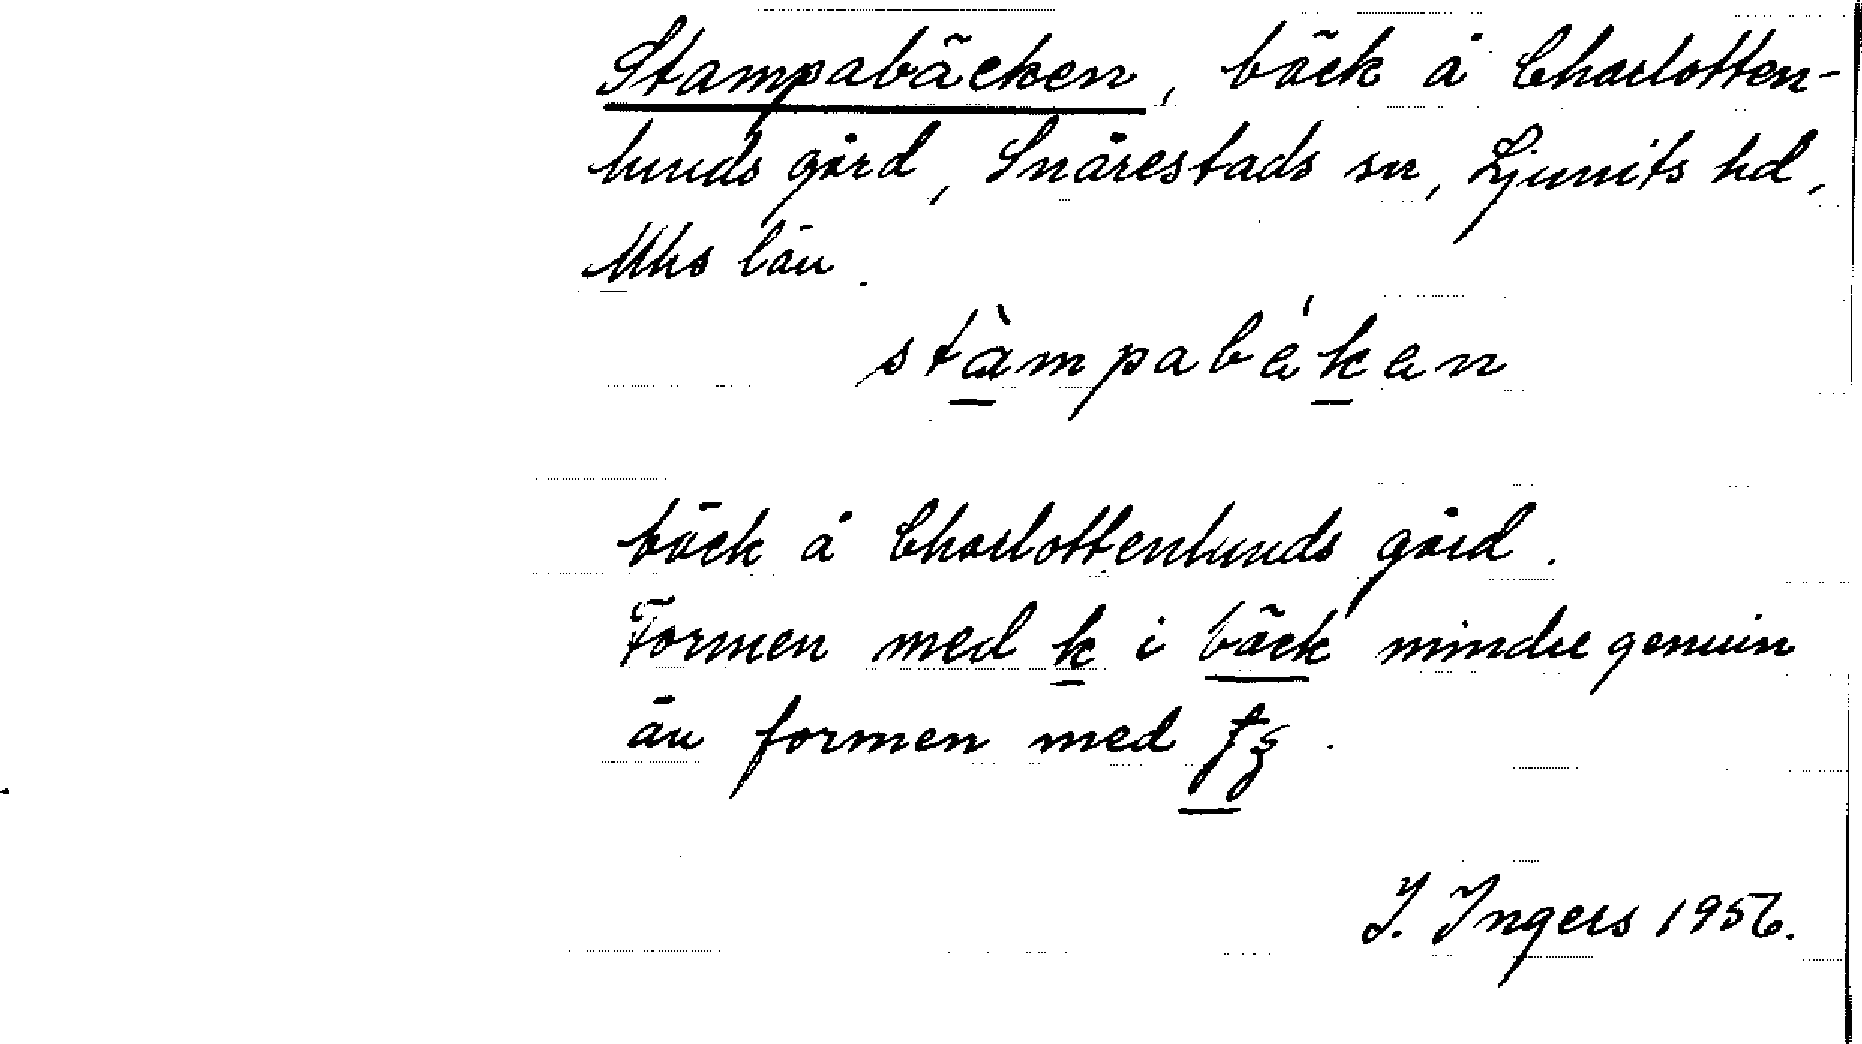 Stampabäcken, bäck å Charlotten-
lunds gård, Snårestads sn, Ljunits hd,
Mhs län.
stàmpabékan
bäck å Charlottenlunds gård.
Formen med k i bäck mindre genuin
än formen med tʒ.
I. Ingers 1956.